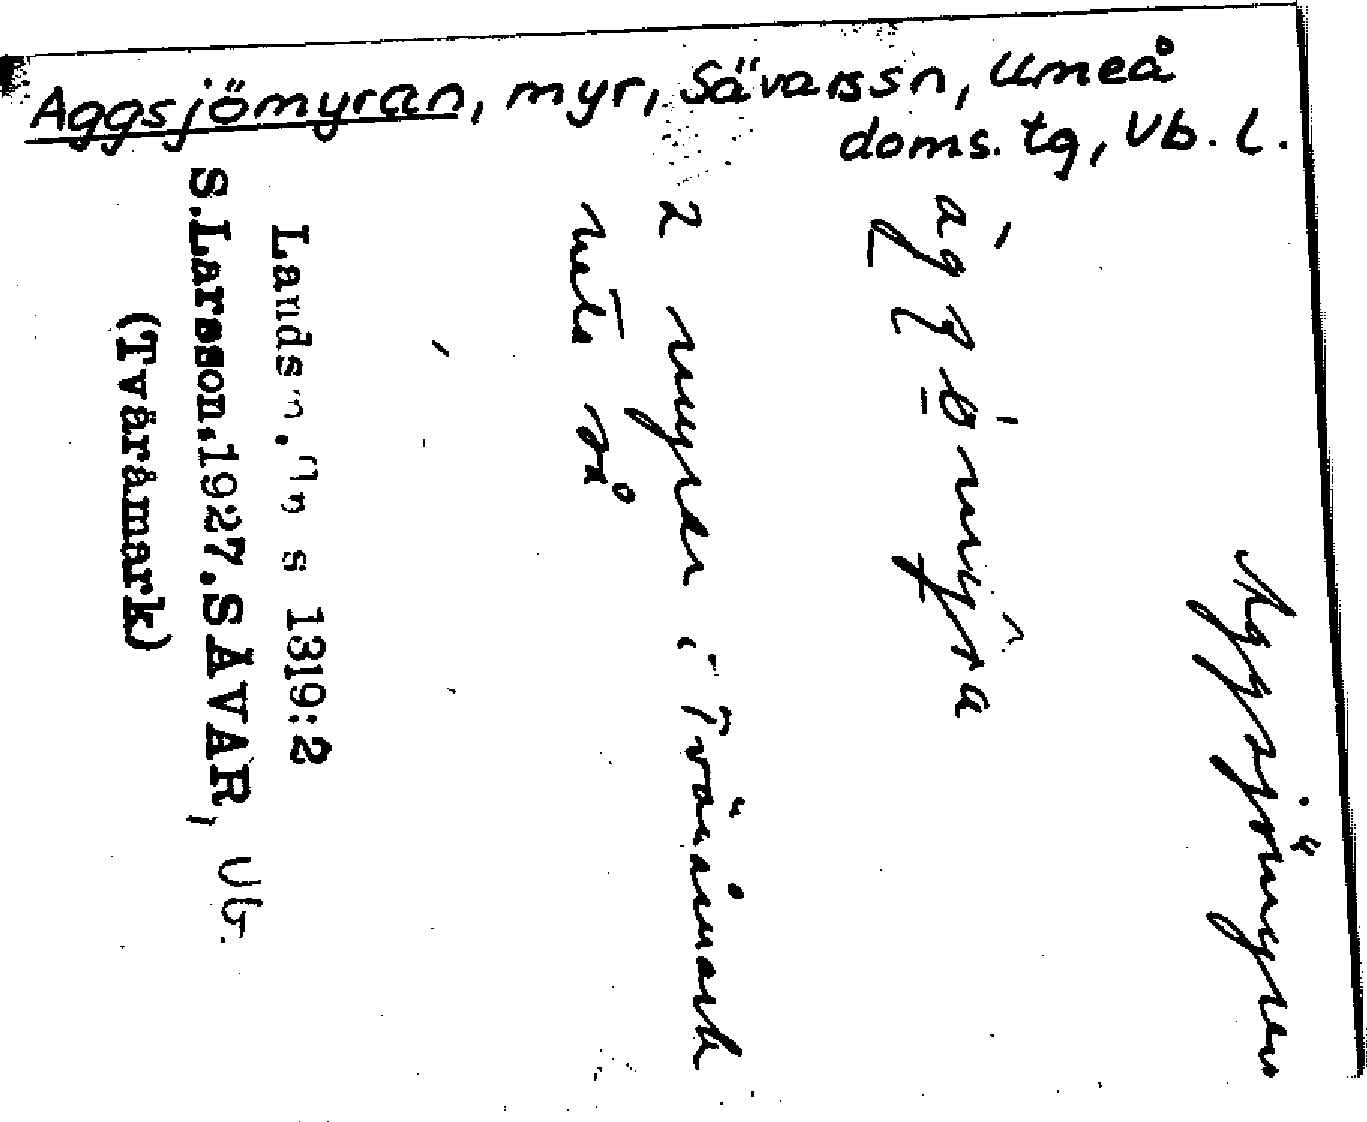 Aggsjömyran, myr, Sävars sn, Umeå
doms. tg, Vb. l.
Aggsjömyran
2 myrar i Tväråmark
heta så
Landsm. s 1319:2
S.Larsson.1927.SÄVAR, Vb.
(Tväråmark)